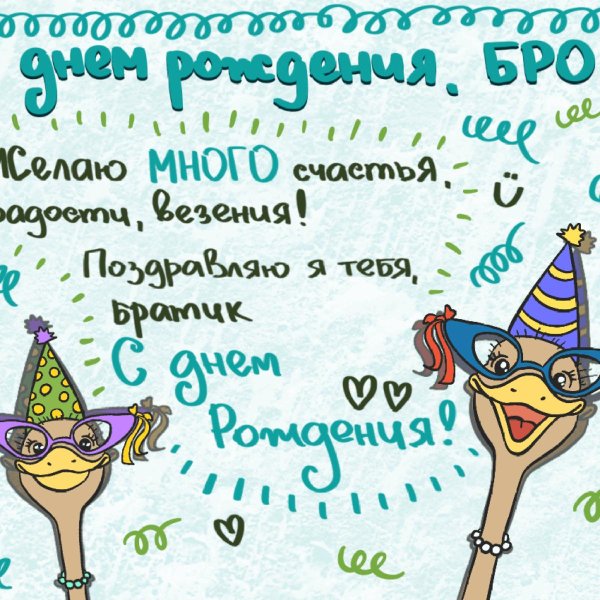 днем рождения, БРО
Желаю МНОГО счастья,
радости, везения!
Поздравляю я тебя,
братик
С днем
Рождения!